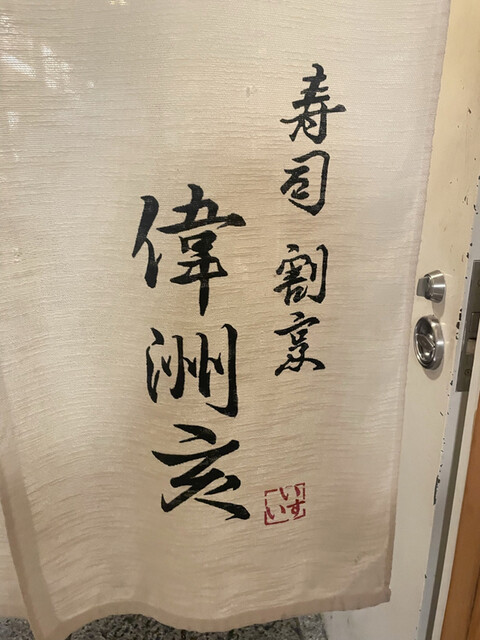 寿司 割烹
偉洲亥
いすい